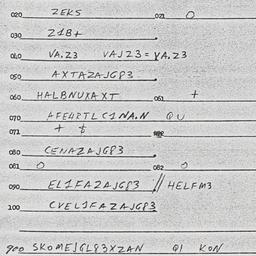 020 ZEKS 021 O
030 Z1B+
040 VA.Z3 VAJZ3= VA.Z3
050 AXTAZAJGP3
060 HALBNUXAXT 061 +
070 AFEHRTLC1NA.N QU
071 + t
080 CENAZAJGP3
081 O 082 O
090 EL1FAZAJGP3 // HELFM3
100 CVEL1FAZAJGP3
900 SKOMEJGL83XZAN Q1 KON